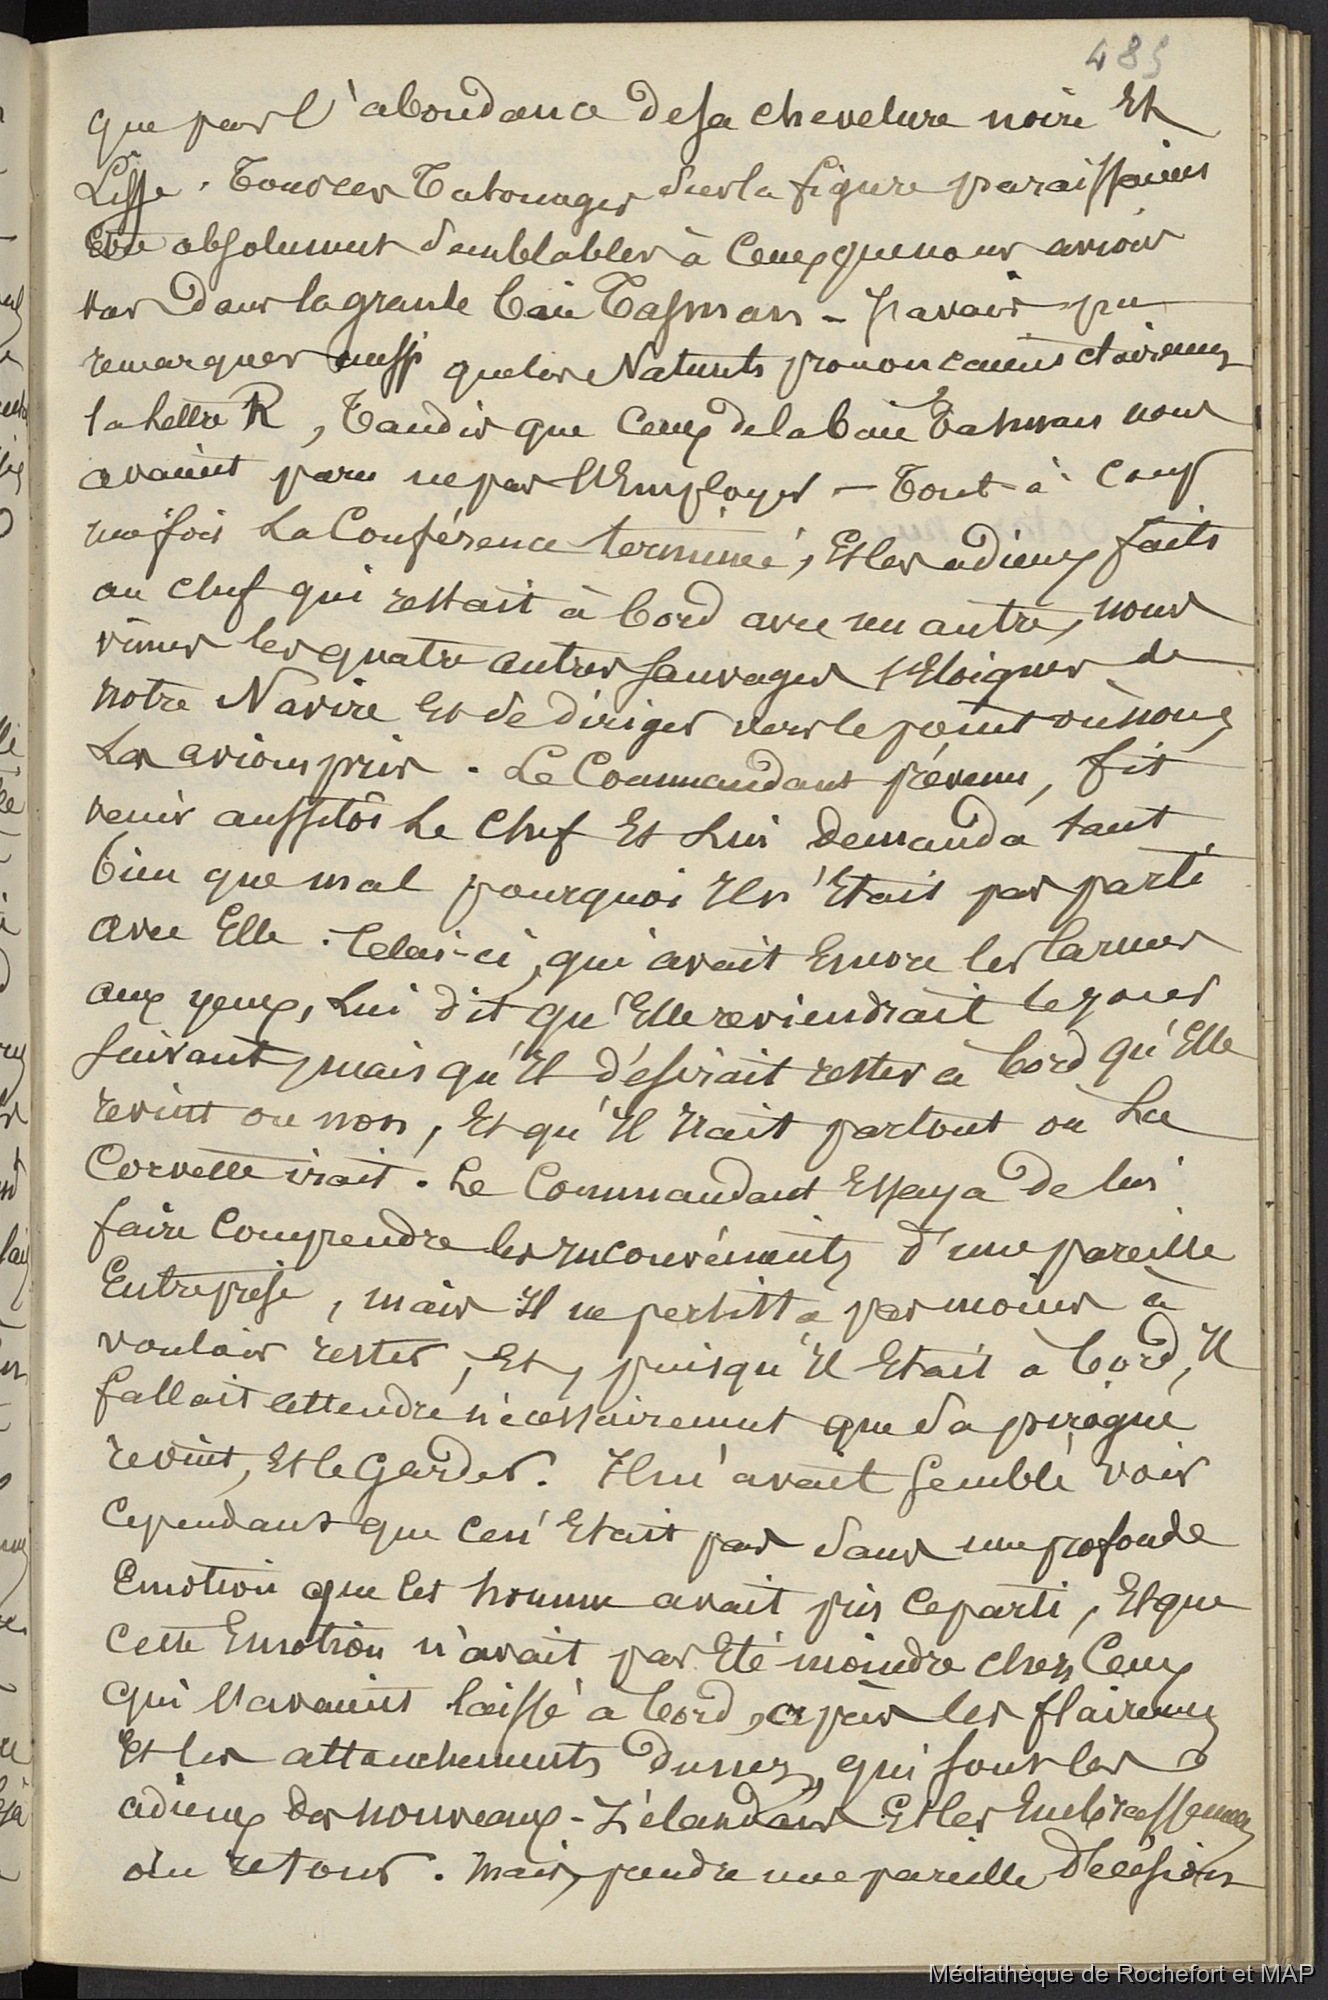 485
que par l'abondance de sa chevelure noire Et
Lisse. Tous ces Tatouages sur la figure paraissaient
Etre absolument semblables à Ceux que nous avions
vus Dans la grande baie Tasman - J'avais pu
remarquer aussi que les Naturels prononcaient clairement
la Lettre R, Tandis que Ceux de la baie Tasman nous
avaient paru ne pas l'Employer - Tout à coup
une fois La Conférence terminée, Et les adieux faits
au chef qui restait à bord avec un autre, nous
vîmes les quatre autres Sauvages s'Eloigner de
notre Navire Et se diriger vers le point où nous
Les avions pris. Le Commandant prévenu, fit
venir aussitôt Le Chef Et Lui demanda tant
bien que mal pourquoi Il n'Etait pas parti
avec Elle. Celui-ci, qui avait Encore les larmes
aux yeux, Lui dit qu'Elle reviendrait le jour
Suivant, mais qu'Il désirait rester à bord qu'Elle
revint ou non, Et qu'Il Irait partout où La
Corvette irait. Le Commandant Essaya de lui
faire Comprendre les Inconvénients d'une pareille
Entreprise, mais Il ne persista pas moins à
vouloir rester, Et, puisqu'Il Etait à bord, Il
fallait attendre nécessairement que sa pirogue
revint, Et le Garder. Il m'avait Semblé voir
Cependant que Ce n'Etait pas sans une profonde
Emotion que Cet homme avait pris ce parti, Et que
cette Emotion n'avait pas Eté moindre chez Ceux
qui l'avaient laissé à bord, après les flairements
Et les attouchements du nez, qui sont les
adieux des nouveaux-Zélandais Et les Embrassements
du retour. Mais, prendre une pareille Décision
Médiathèque de Rochefort et MAP